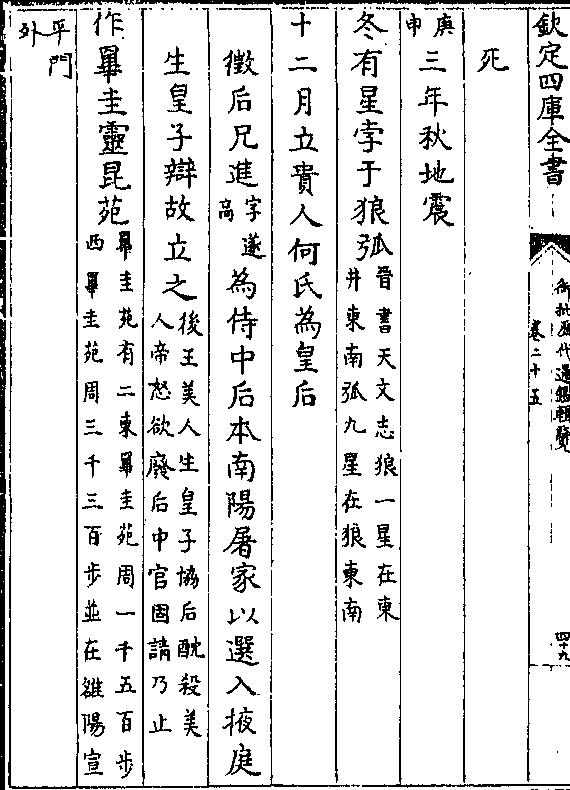 欽定四庫全書
御批歷代通鑑輯覽
卷二十五
四十九
死
庚申
三年秋地震
冬有星孛于狼弧
晉書天文志狼一星在東
井東南弧九星在狼東南
十二月立貴人何氏為皇后
徵后兄進
字遂
高
為侍中后本南陽屠家以選入掖庭
生皇子辯故立之
後王美人生皇子協后酖殺美
人帝怒欲廢后中官固請乃止
作畢圭靈昆苑
畢圭苑有二東畢圭苑周一千五百步
西畢圭苑周三千三百步並在雒陽宣
平門
外